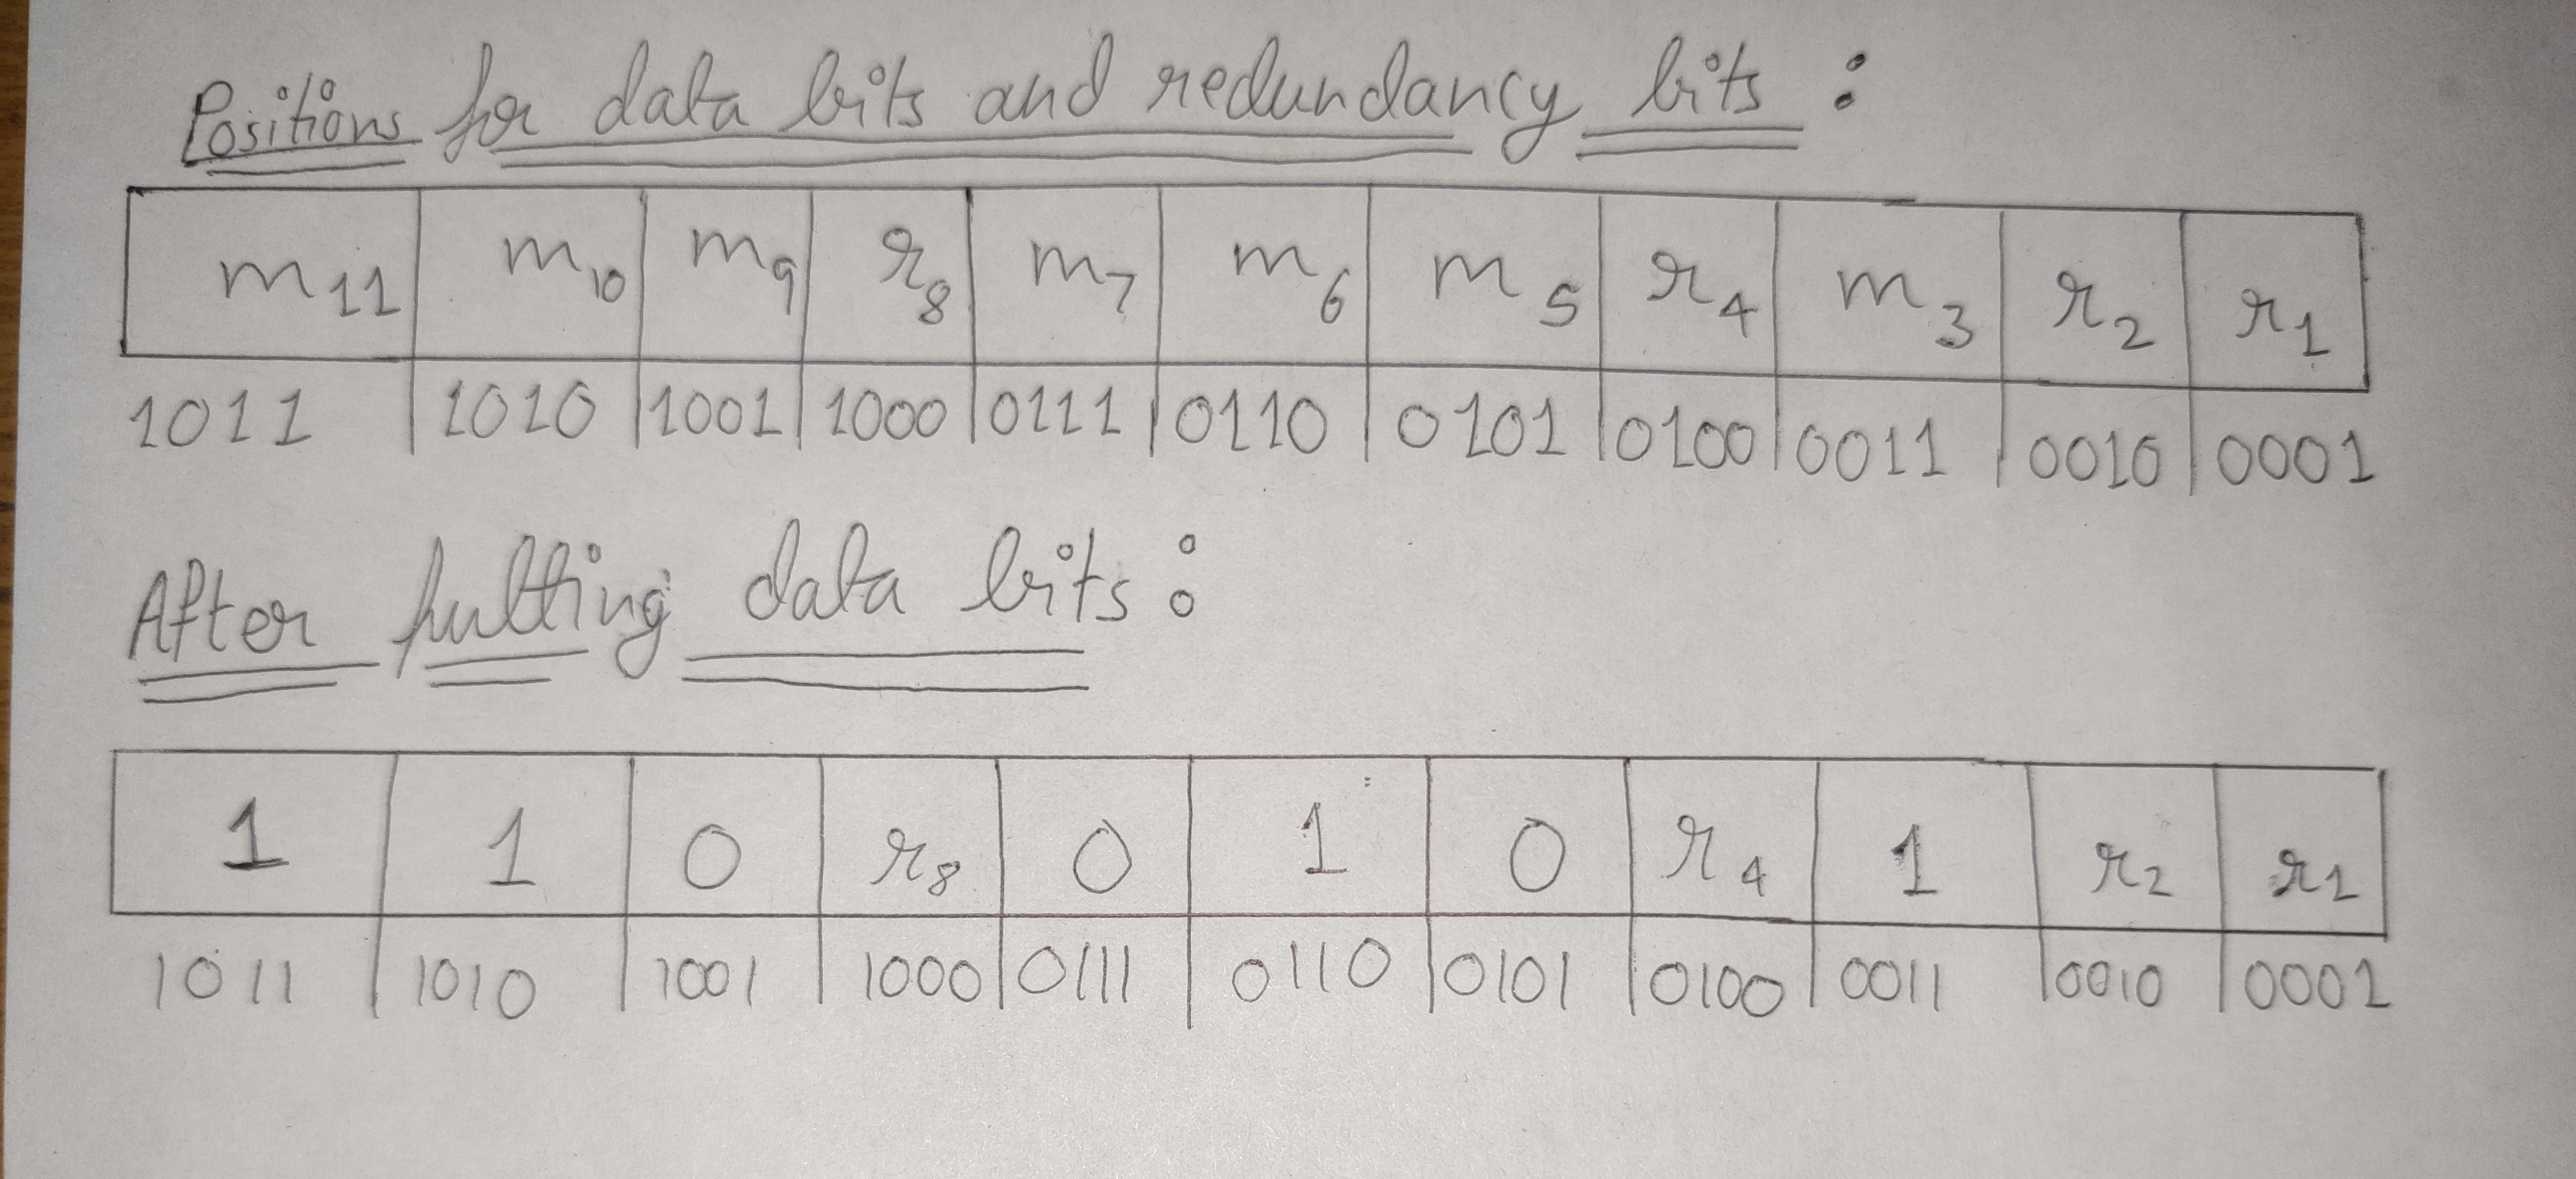 Positions for data bits and redundancy bits :
m11 m10 m9 r8 m7 m6 m5 r4 m3 r2 r1
1011 1010 1001 1000 0111 0110 0101 0100 0011 0010 0001
After putting data bits :
1 1 0 r8 0 1 0 r4 1 r2 r1
1011 1010 1001 1000 0111 0110 0101 0100 0011 0010 0001